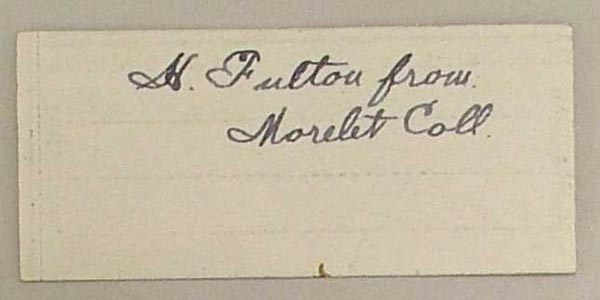 H. Fulton from.
Morelet Coll.